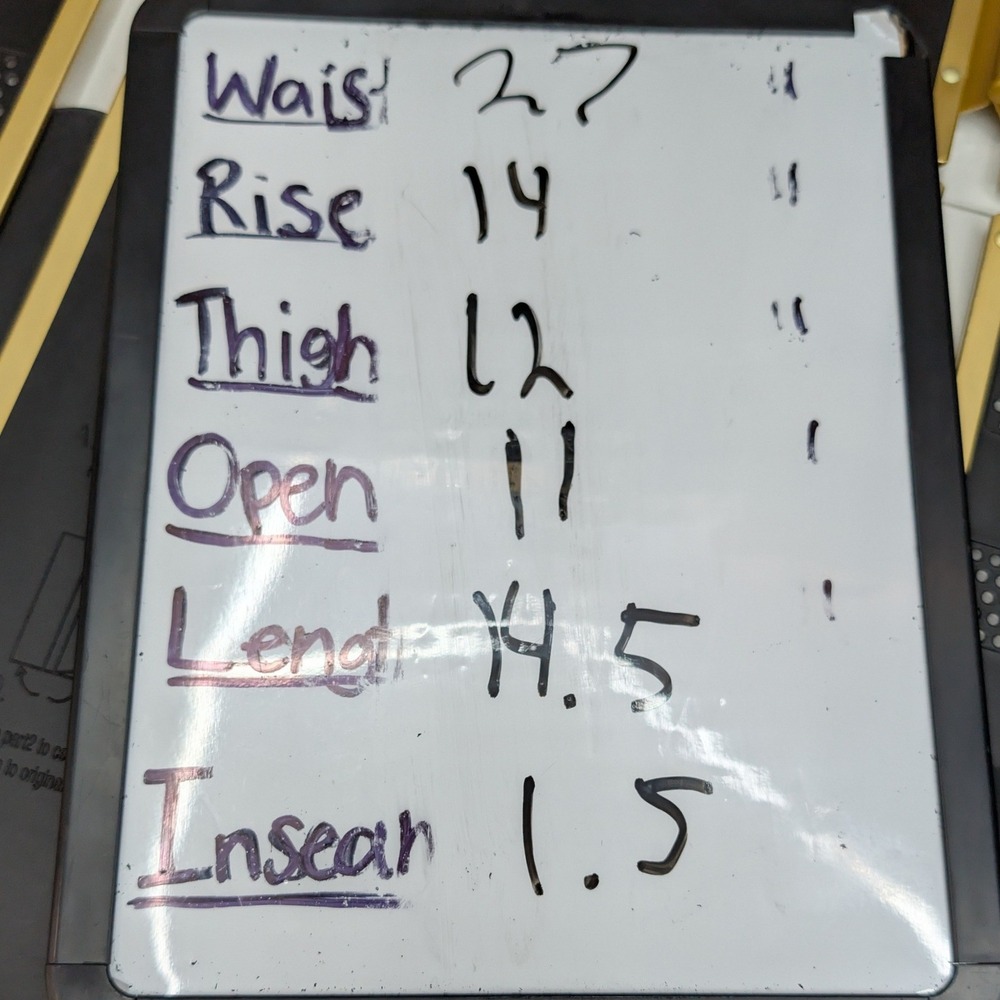 Waist 27 "
Rise 14 "
Thigh 12 "
Open 11 '
Lengt 14.5 '
Insean 1.5
part2 to
to origina